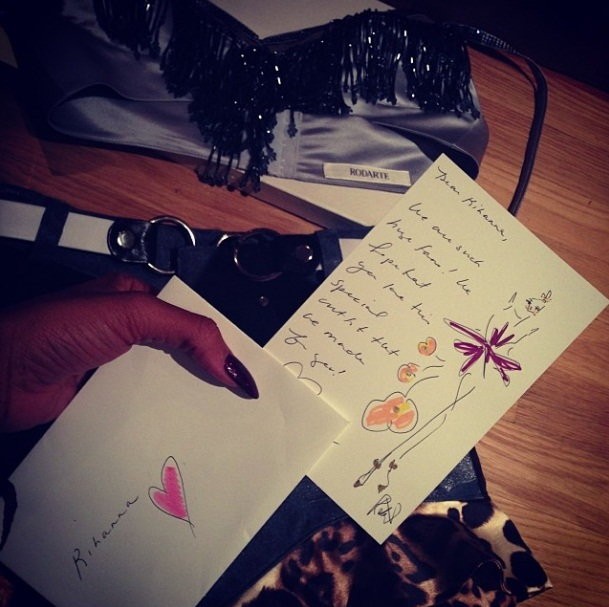 RODARTE
Dear Rihanna,
We are such
huge fans! We
hope that
you love this
special
outfit that
we made
for you!
Rihanna